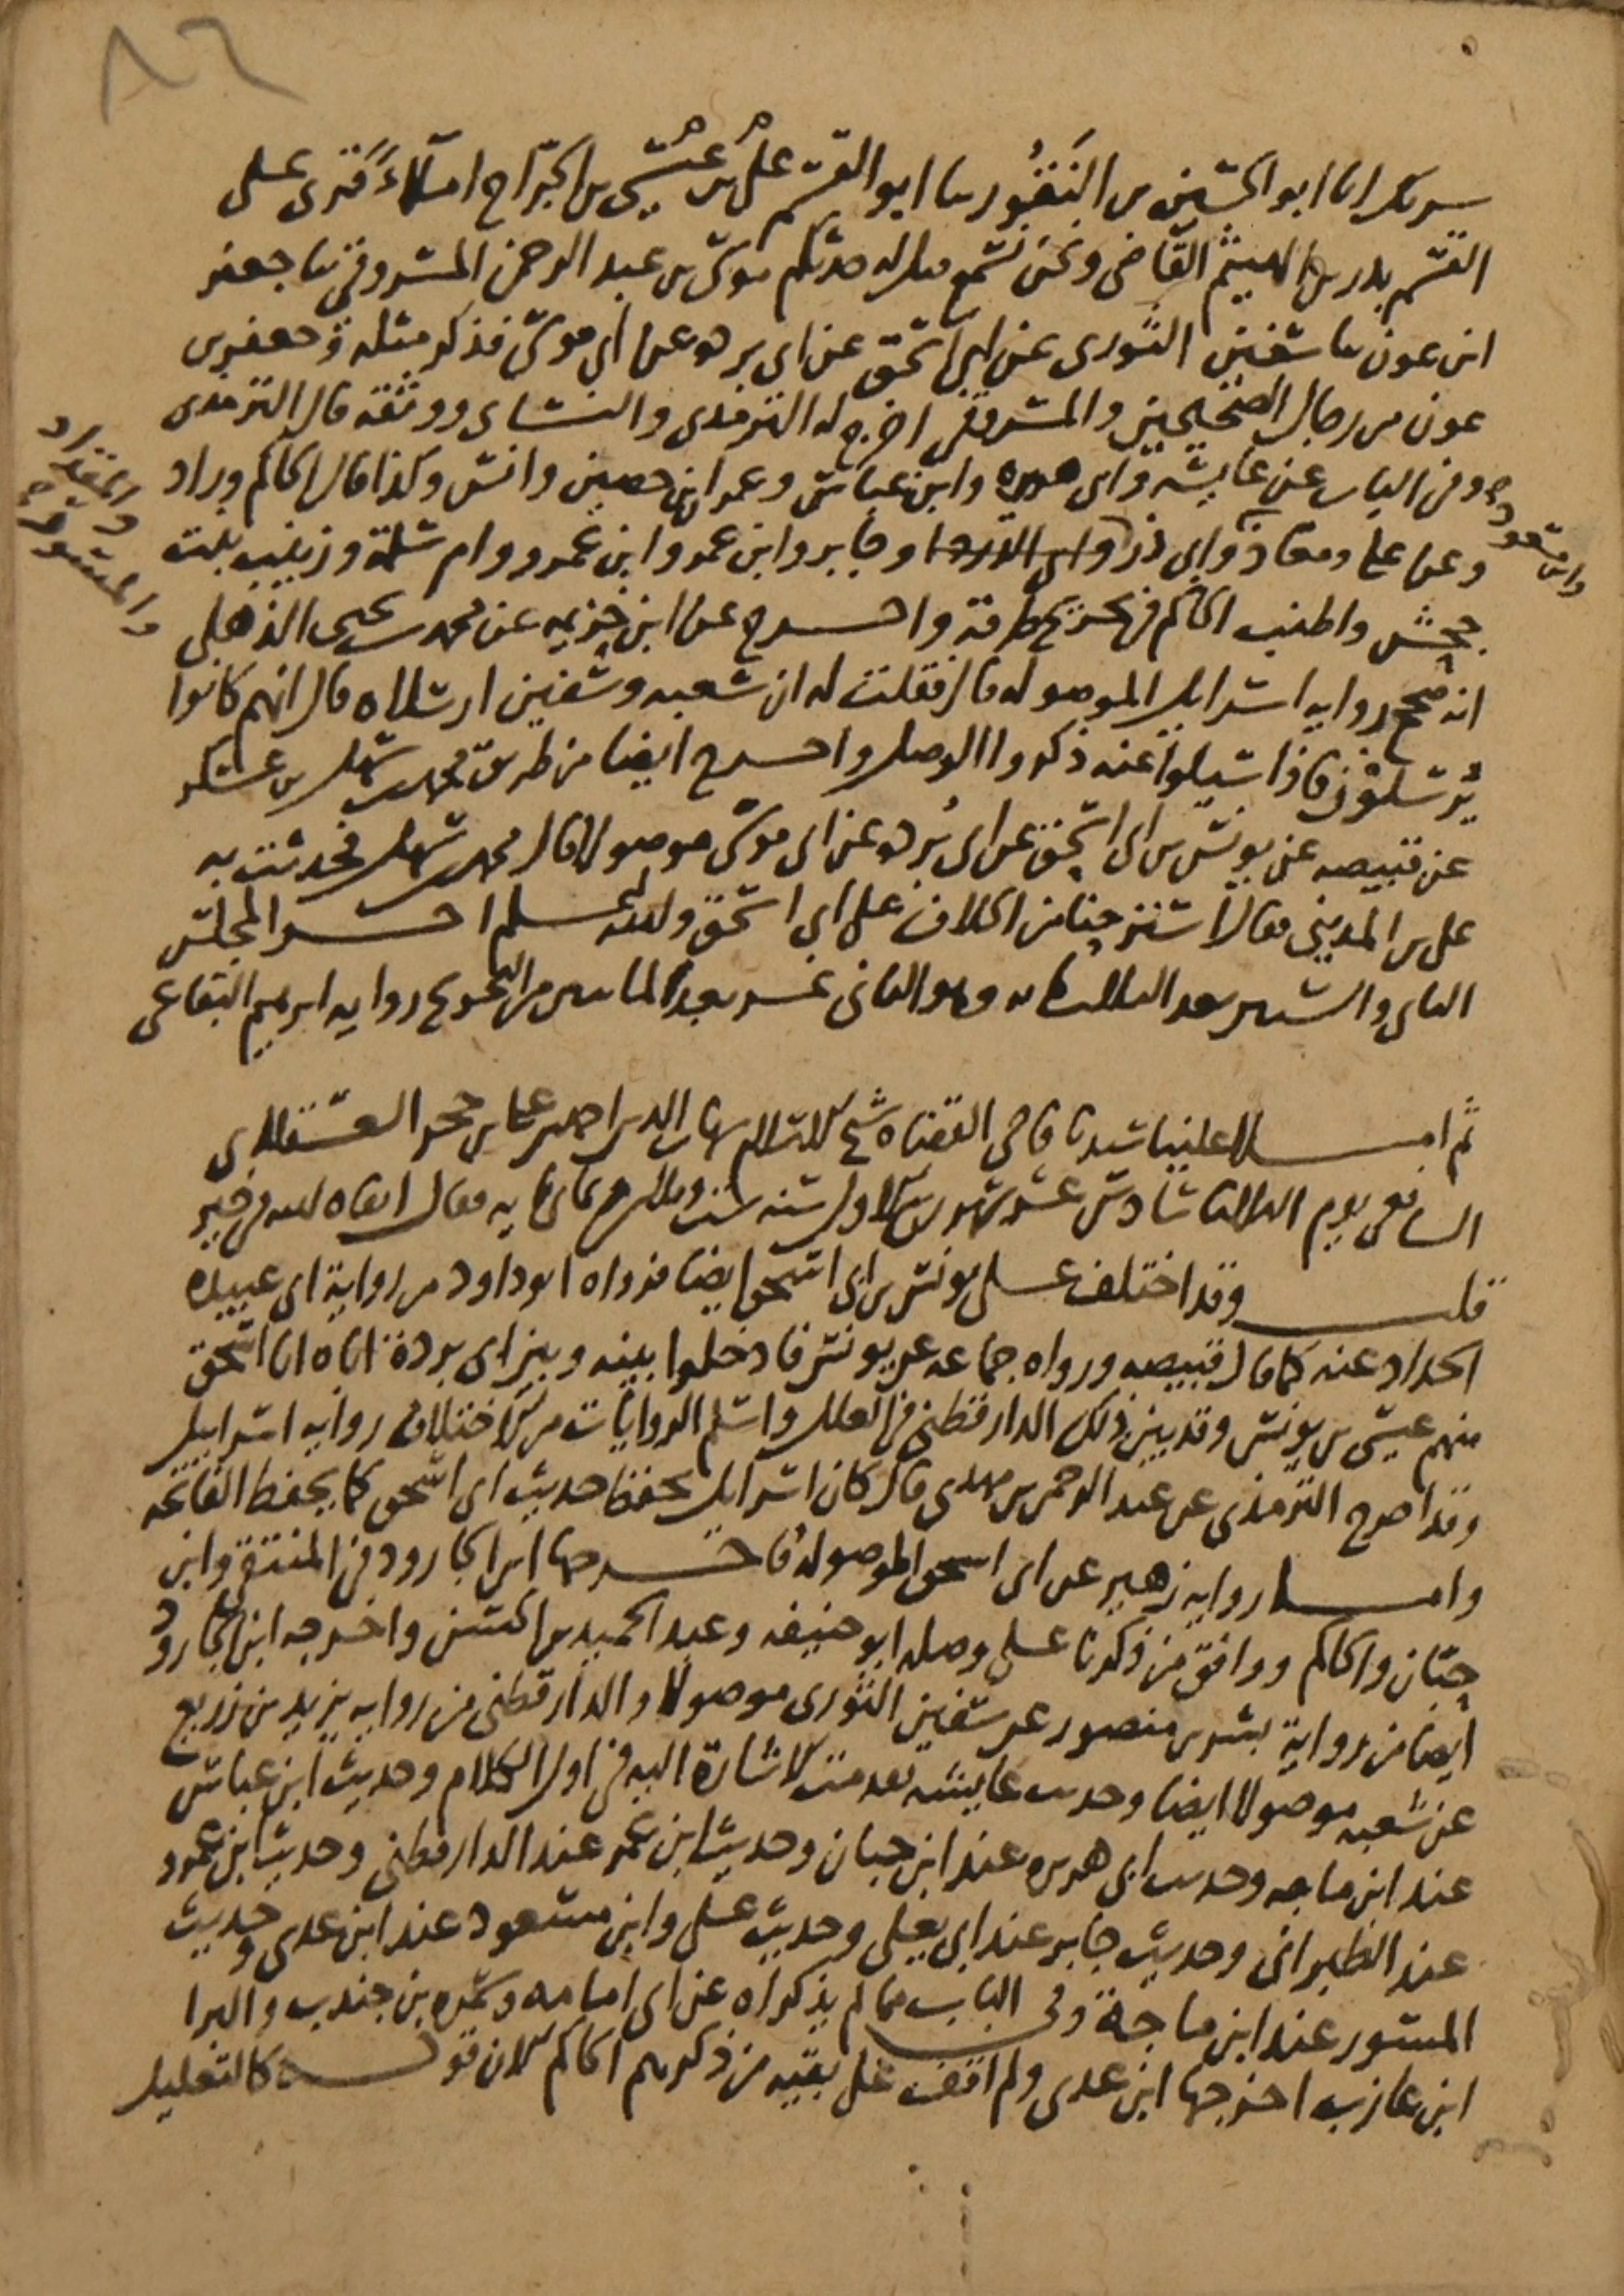 ٨٢
انا ابو الحسين بن النقور نا ابو القسم علي بن عيسى بن الجراح املاء قرى على
القسم بدر بن الهيثم القاضي ونحن نسمع قيل له حدثكم موسى بن عبد الرحمن المسروقي نا جعفر
ابن عون نا سفين الثوري عن ابي اسحق عن ابي بردة عن ابي موسى فذكر مثله وجعفر بن
عون من رجال الصحيحين والمسروقي اخرج له الترمذي والنساي ووثقه قال الترمذي
وفي الباب عن عايشه وابي هريره وابن عباس وعمران بن حصين وانس وكذا قال الحاكم وزاد
وابن مسعود
والمقداد
والمسور
وعن علي ومعاذ وابي ذر وابي الدردا وجابر وابن عمر وابن عمرو وام سلمة وزينب بنت
جحش واطنب الحاكم في تخريج طرقه واخرج عن ابن خزيمه عن محمد بن يحيى الذهلي
انه صحح روايه اسرايل الموصوله قال فقلت له ان شعبه وسفين ارسلاه قال انهم كانوا
يرسلون فاذا سيلوا عنه ذكروا الوصل واخرج ايضا من طريق محمد بن سهل بن عسكر
عن قبيصه عن يونس بن ابي اسحق عن ابي بردة عن ابي موسى موصولا قال محمد بن سهل فحدثت به
علي بن المديني فقال استرحنا من الخلاف على ابي اسحق والله اعلم اخر المجلس
الثاني والستين بعد الثلاثمايه وهو الثاني عشر بعد الماتين من التخريج روايه ابرهيم البقاعي
ثم املا علينا سيدنا قاضي القضاه شيخ الاسلام شهاب الدين احمد بن علي بن حجر العسقلاني
الشافعي يوم الثلاثا سادس عشر شهر ربيع الاول سنه ست وثلاثين وثماني مايه فقال ابقاه الله في خير
قلت وقد اختلف على يونس بن ابي اسحق ايضا فرواه ابو داود من رواية ابي عبيده
الحداد عنه كما قال قبيصه ورواه جماعه عن يونس فادخلوا بينه وبين ابي بردة اباه ابا اسحق
منهم عيسى بن يونس وقد بين ذلك الدارقطني في العلل واسلم الروايات من الاختلاف روايه اسرايل
وقد اخرج الترمذي عن عبد الرحمن بن مهدي قال كان اسرايل يحفظ حديث ابي اسحق كما يحفظ الفاتحه
واما روايه زهير عن ابي اسحق الموصوله فاخرجها ابن الجارود في المنتقى وابن
حبان والحاكم ووافق من ذكرنا على وصله ابو حنيفه وعبد الحميد بن الحسن واخرجه ابن الجارود
ايضا من رواية بشر بن منصور عن سفين الثوري موصولا والدارقطني من روايه يزيد بن زريع
عن شعبه موصولا ايضا وحديث عايشه تقدمت الاشارة اليه في اول الكلام وحديث ابن عباس
عند ابن ماجه وحديث ابي هريره عند ابن حبان وحديث ابن عمر عند الدارقطني وحديث ابن عمرو
عند الطبراني وحديث جابر عند ابي يعلى وحديث علي وابن مسعود عند ابن عدي وحديث
المسور عند ابن ماجة وفي الباب مما لم يذكراه عن ابي امامه وسمره بن جندب والبرا
ابن عازب اخرجها ابن عدي ولم اقف على بقيه من ذكرهم الحاكم لان قوله كالتعليل